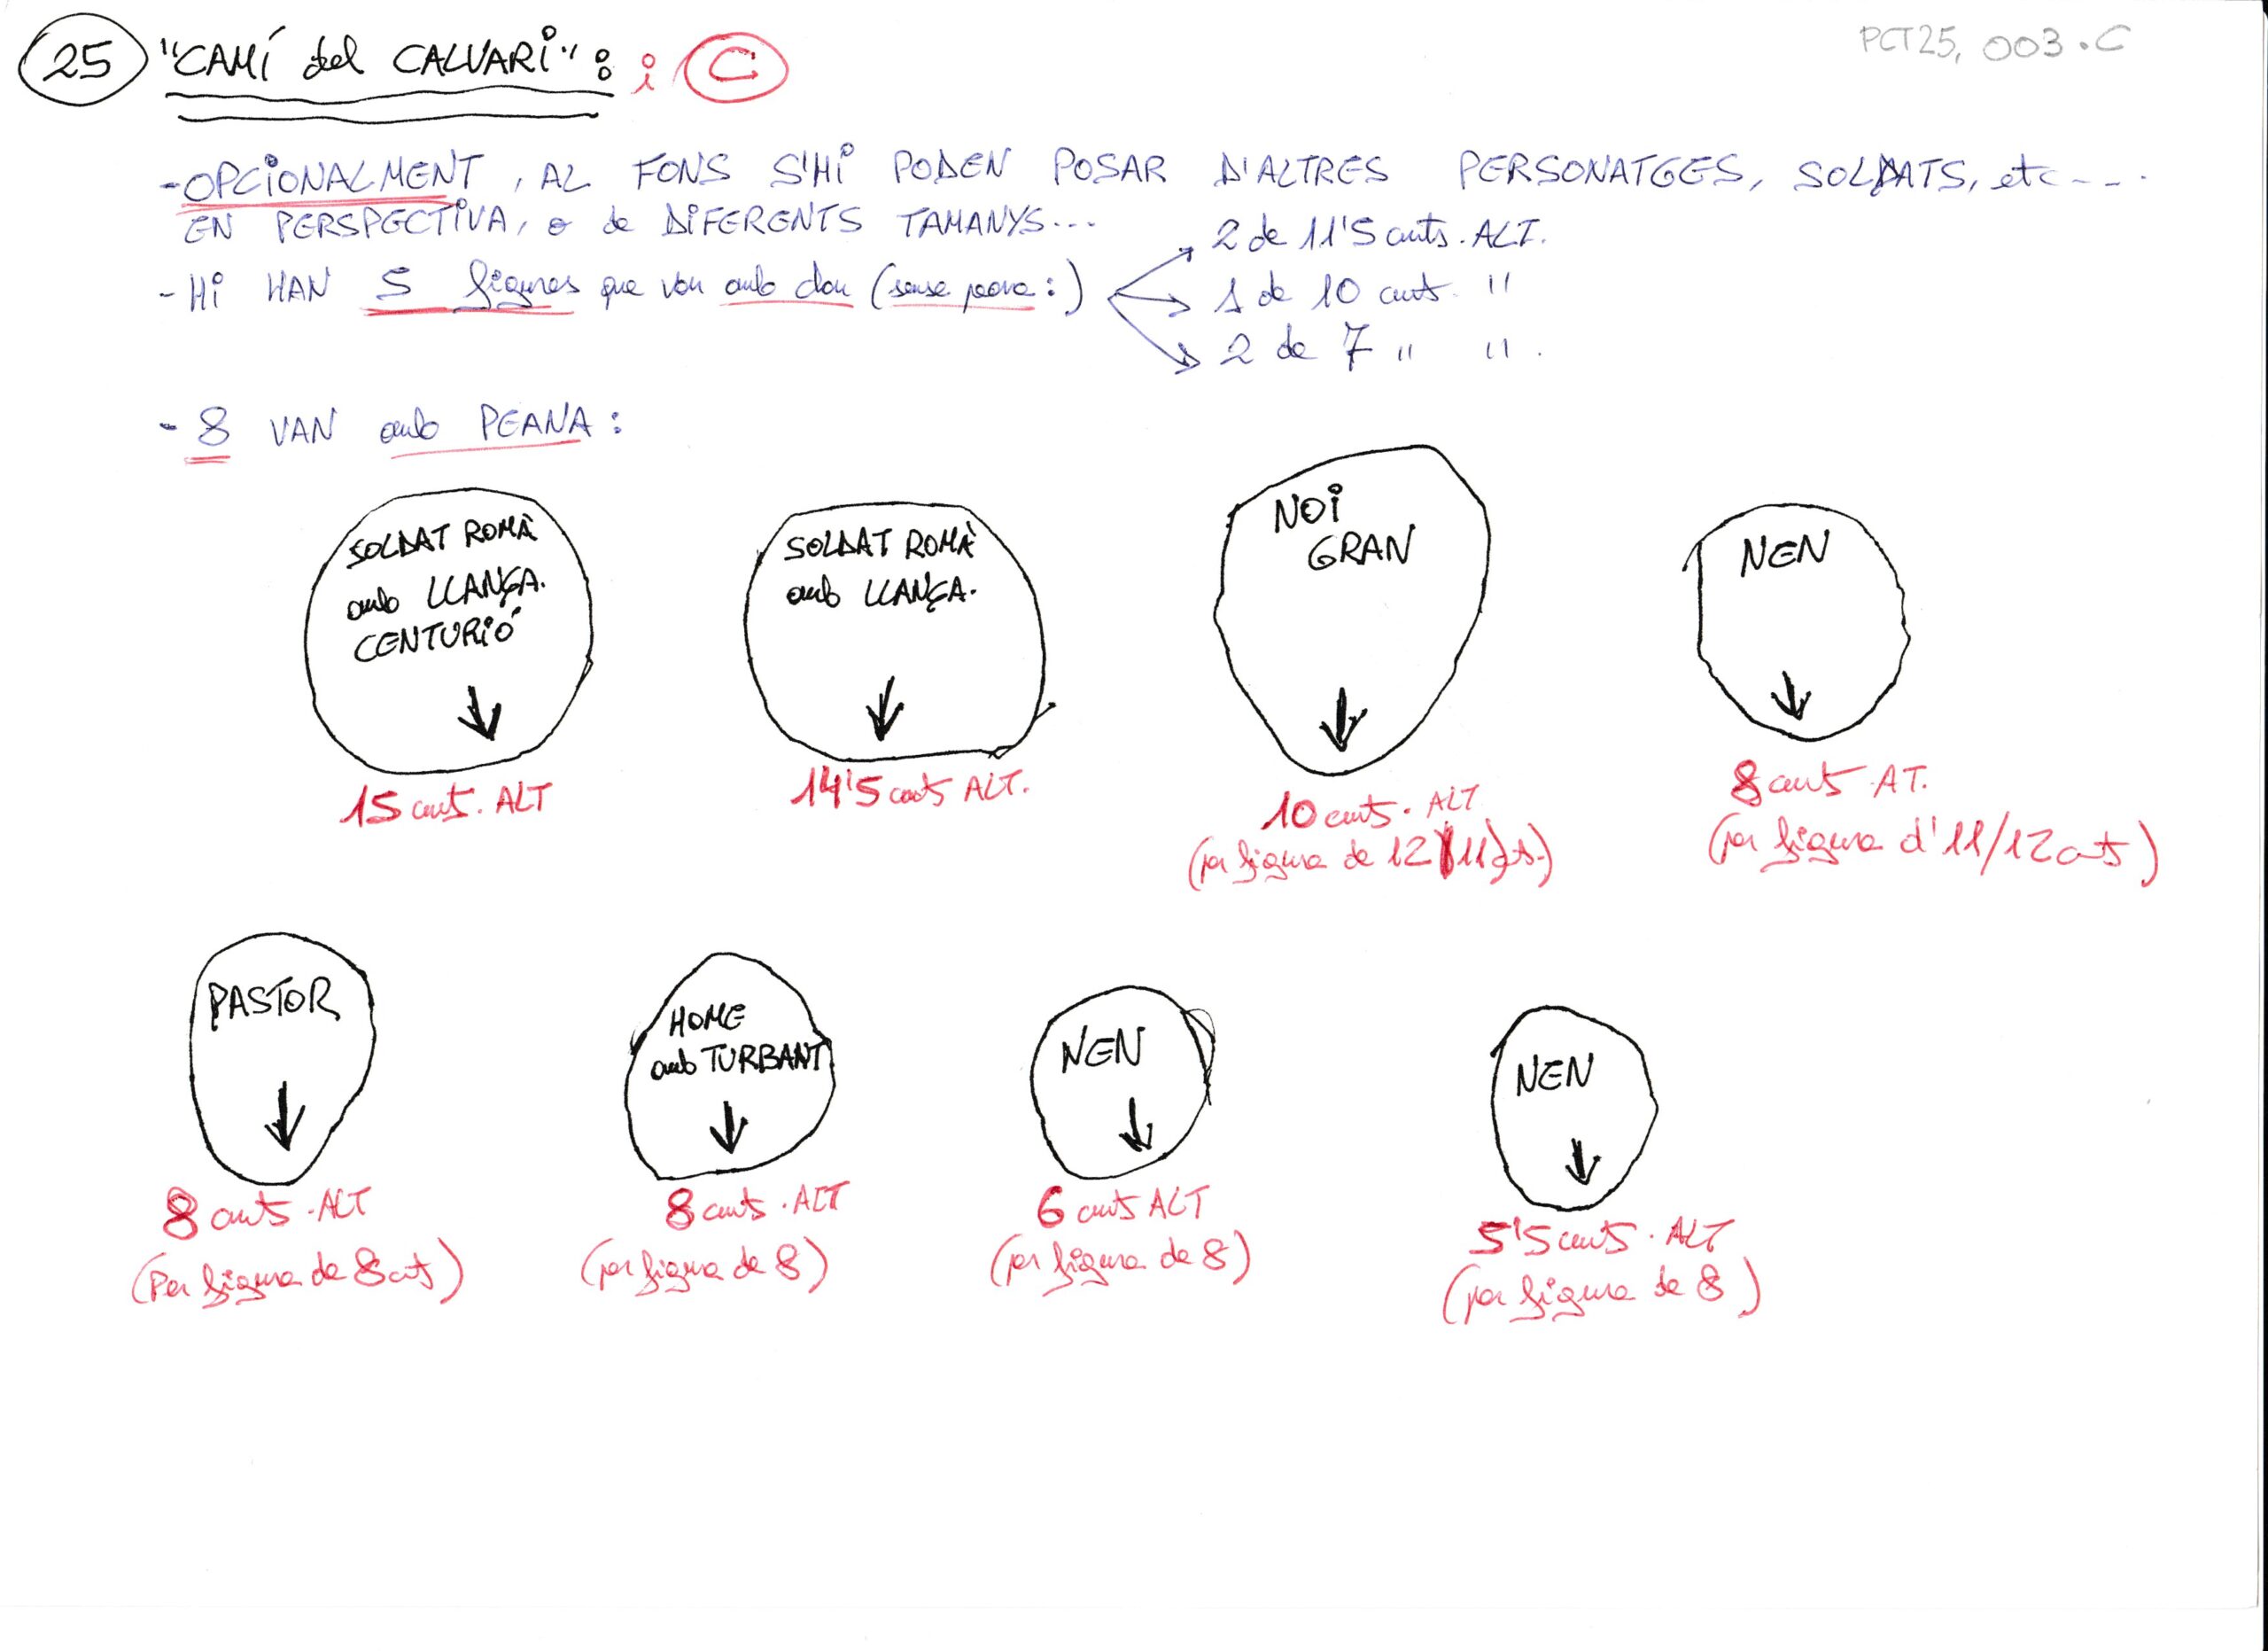 25 "CAMÍ del CALVARI": i C
PCT25, 003.C
-OPCIONALMENT, AL FONS S'HI PODEN POSAR D'ALTRES PERSONATGES, SOLDATS, etc---.
EN PERSPECTIVA, o de DIFERENTS TAMANYS...
-Hi HAN 5 figures que van amb clau (sense peana:)
2 de 11'5 cmts. ALT.
1 de 10 cmts. "
2 de 7 " " .
- 8 VAN amb PEANA:
SOLDAT ROMÀ
amb LLANÇA.
CENTURIÓ
15 cmts. ALT
SOLDAT ROMÀ
amb LLANÇA.
14'5 cmts ALT.
NOI
GRAN
10 cmts. ALT
(per figura de 12 11)
NEN
8 cmts. AT.
(per figura d'11/12 cmts)
PASTOR
8 cmts. ALT
(Per figura de 8 cmts)
HOME
amb TURBANT
8 cmts. ALT
(per figura de 8)
NEN
6 cmts ALT
(per figura de 8)
NEN
5'5 cmts. ALT
(per figura de 8)